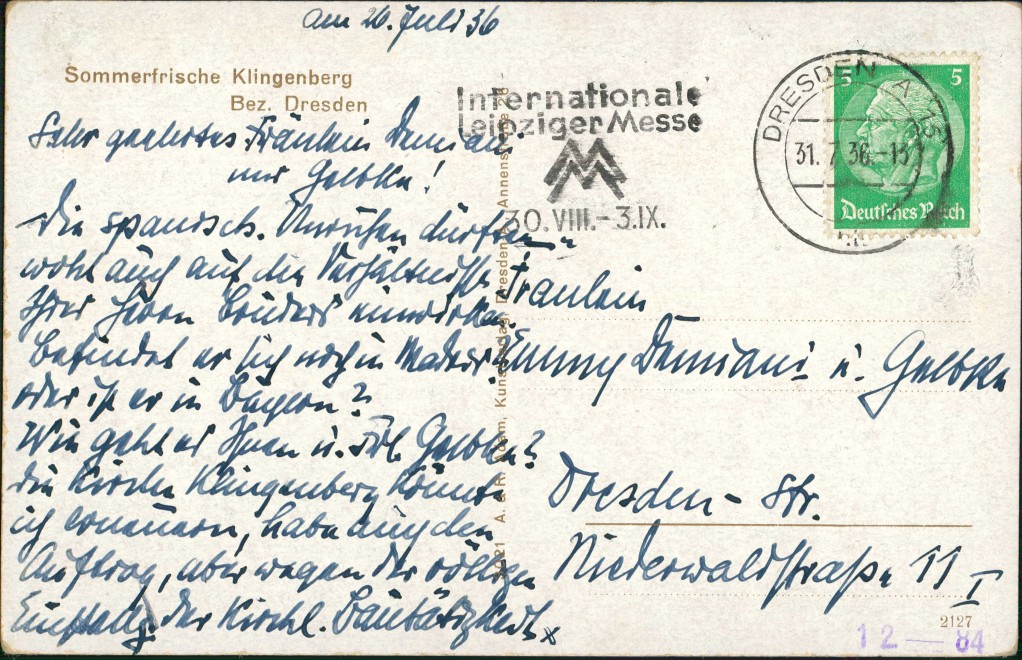 am 26. Juli 36
Sommerfrische Klingenberg
Bez. Dresden
Sehr geehrtes Fräulein Demiani
und Gelbke!
Die spanisch. Unruhen dürften
wohl auch auf die Verhältnisse
Ihres Herrn Bruders einwirken.
Befindet er sich noch in Madrid
oder ist er in Bayern?
Wie geht es Ihnen u. Frl. Gelbke?
Die Kirche Klingenberg könnte
ich erneuern, habe auch den
Auftrag, aber wegen der völligen
Einstellg. der Kirchl. Bautätigkeit
Internationale
Leipziger Messe
MM
30. VIII. - 3. IX.
DRESDEN A
31.7.36.-13
5 5
Deutsches Reich
Fräulein
Emmy Demiani u. Gelbke
Dresden - Str.
Niederwaldstraße 11 I
A. & R. Adam, Kunstverlag, Dresden, Annenstraße 28
2127
12 — 84